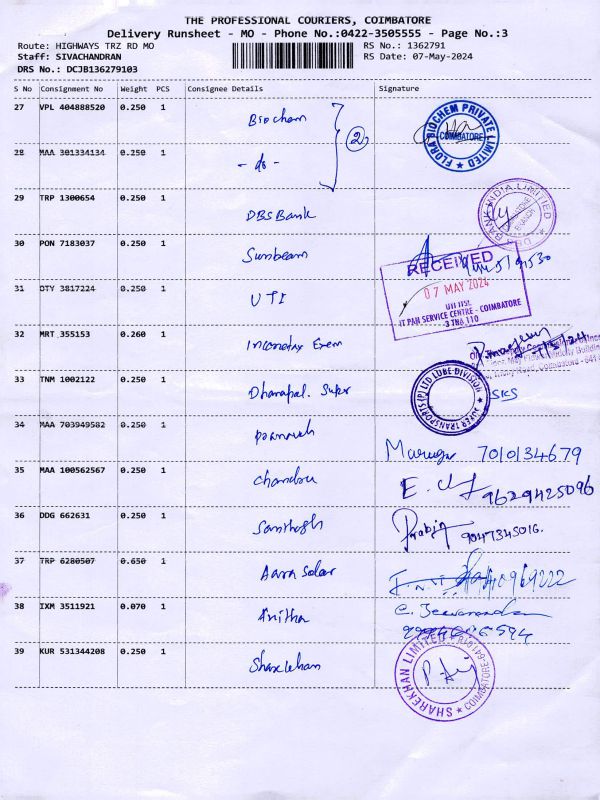 THE PROFESSIONAL COURIERS, COIMBATORE
Delivery Runsheet - MO - Phone No.:0422-3505555 - Page No.:3
Route: HIGHWAYS TRZ RD MO RS No.: 1362791
Staff: SIVACHANDRAN RS Date: 07-May-2024
DRS No.: DCJB136279103
S No Consignment No Weight PCS Consignee Details Signature
27 VPL 404888520 0.250 1 Biochem FLORA BIOCHEM PRIVATE LIMITED COIMBATORE
28 MAA 301334134 0.250 1 - do - 2
29 TRP 1300654 0.250 1 DBS Bank DBS BANK INDIA LIMITED
30 PON 7183037 0.250 1 Sunbeam
31 DTY 3817224 0.250 1 UTI RECEIVED
07 MAY 2024
UTI ITSL
IT PAN SERVICE CENTRE - COIMBATORE
3 TNA 110
32 MRT 355153 0.260 1 Incometax
33 TNM 1002122 0.250 1 Dhanapal. Super SUPER TRANSPORTS (P) LTD LUBE DIVISION SKS
34 MAA 703949582 0.250 1 Murugan 7010134679
35 MAA 100562567 0.250 1 Chandru 9629425096
36 DDG 662631 0.250 1 Santhosh 9047345016.
37 TRP 6280507 0.650 1 Aara Solar
38 IXM 3511921 0.070 1 Anitha C. Jeevanandan
39 KUR 531344208 0.250 1 Sharekhan SHAREKHAN LIMITED COIMBATORE-641018